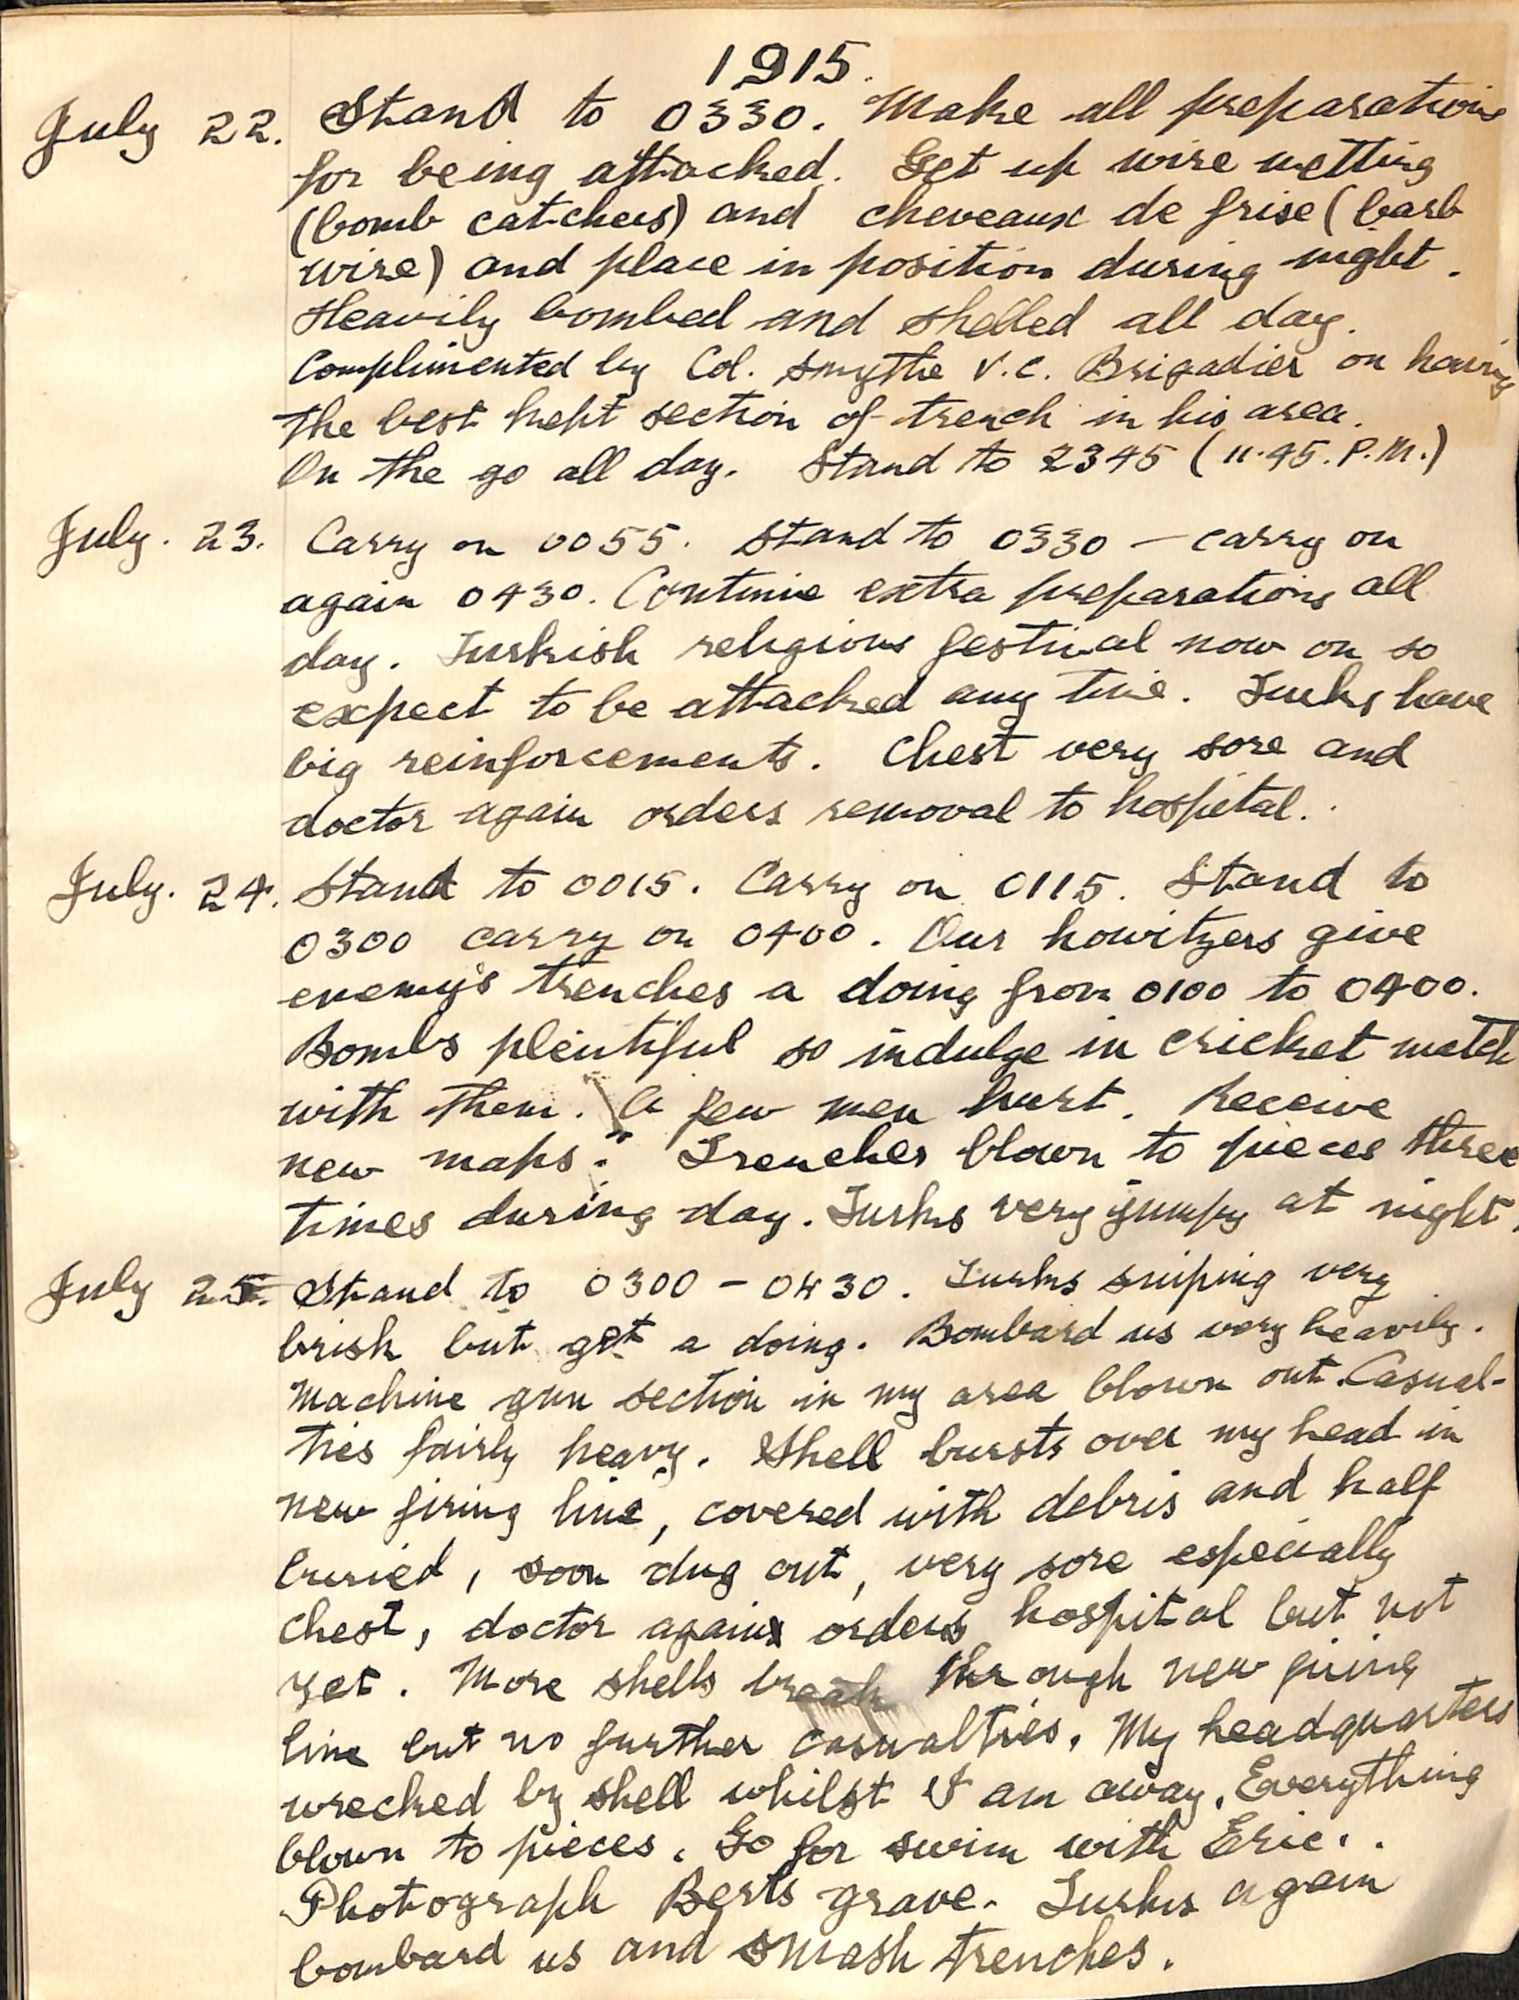 1915.
July 22. Stand to 0330. Make all preparations
for being attacked. Get up wire netting
(bomb catchers) and cheveaux de frise (barb
wire) and place in position during night.
Heavily bombed and shelled all day.
Complimented by Col. Smythe V.C. Brigadier on having
the best kept section of trench in his area.
On the go all day. Stand to 2345 (11.45. P.M.)
July. 23. Carry on 0055. Stand to 0330 – carry on
again 0430. Continue extra preparations all
day. Turkish religious festival now on so
expect to be attacked any time. Turks have
big reinforcements. Chest very sore and
doctor again orders removal to hospital.
July. 24. Stand to 0015. Carry on 0115. Stand to
0300 carry on 0400. Our howitzers give
enemy's trenches a doing from 0100 to 0400.
Bombs plentiful so indulge in cricket match
with them. A few men hurt. Receive
new maps. Trenches blown to pieces three
times during day. Turks very jumpy at night.
July 25. Stand to 0300 – 0430. Turks sniping very
brisk but get a doing. Bombard us very heavily.
Machine gun section in my area blown out. Casual-
ties fairly heavy. Shell bursts over my head in
new firing line, covered with debris and half
buried, soon dug out, very sore especially
chest, doctor again orders hospital but not
yet. More shells break through new firing
line but no further casualties. My headquarters
wrecked by shell whilst I am away. Everything
blown to pieces. Go for swim with Eric.
Photograph Berts grave. Turks again
bombard us and smash trenches.